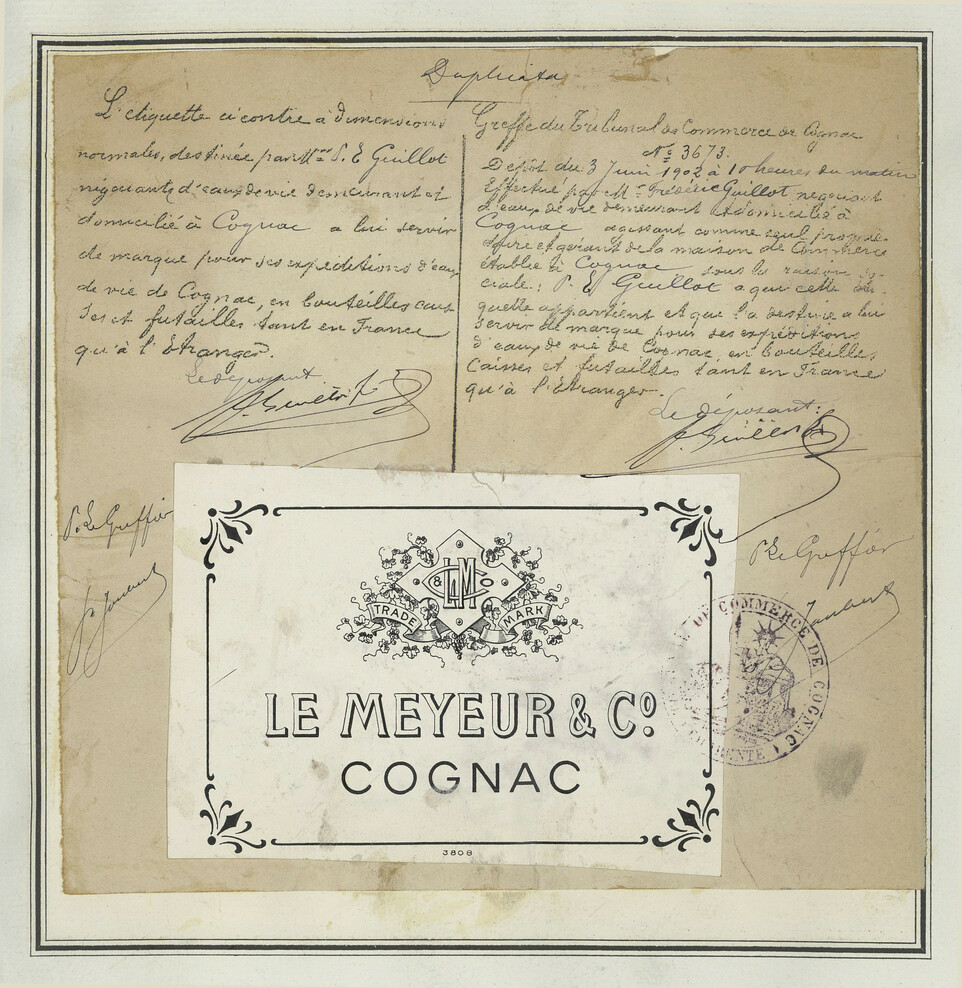 Duplicata
L'étiquette ci contre à dimensions
normales, destinée par Mr P. E Guillot
négociant d'eaux de vie demeurant et
domicilié à Cognac a lui servir
de marque pour ses expéditions d'eaux
de vie de Cognac, en bouteilles cais
ses et futailles tant en France
qu'à l'Etranger.
Le déposant
P. Le Greffier
Greffe du Tribunal de Commerce de Cognac
No 3673.
Dépôt du 3 Juin 1902 à 10 heures du matin
Effectué par Mr Frédéric Guillot, négociant
d'eaux de vie demeurant et domicilié à
Cognac agissant comme seul proprié-
taire et gérant de la maison de Commerce
établie à Cognac sous la raison so-
ciale: P. E Guillot a qui cette éti-
quette appartient et que l'a destinée a lui
servir de marque pour ses expéditions
d'eaux de vie de Cognac, en bouteilles
Caisses et futailles tant en France
qu'à l'Etranger.
Le déposant:
P. Le Greffier
& L M Co
TRADE MARK
LE MEYEUR & Co.
COGNAC
3808
DE COMMERCE DE COGNAC